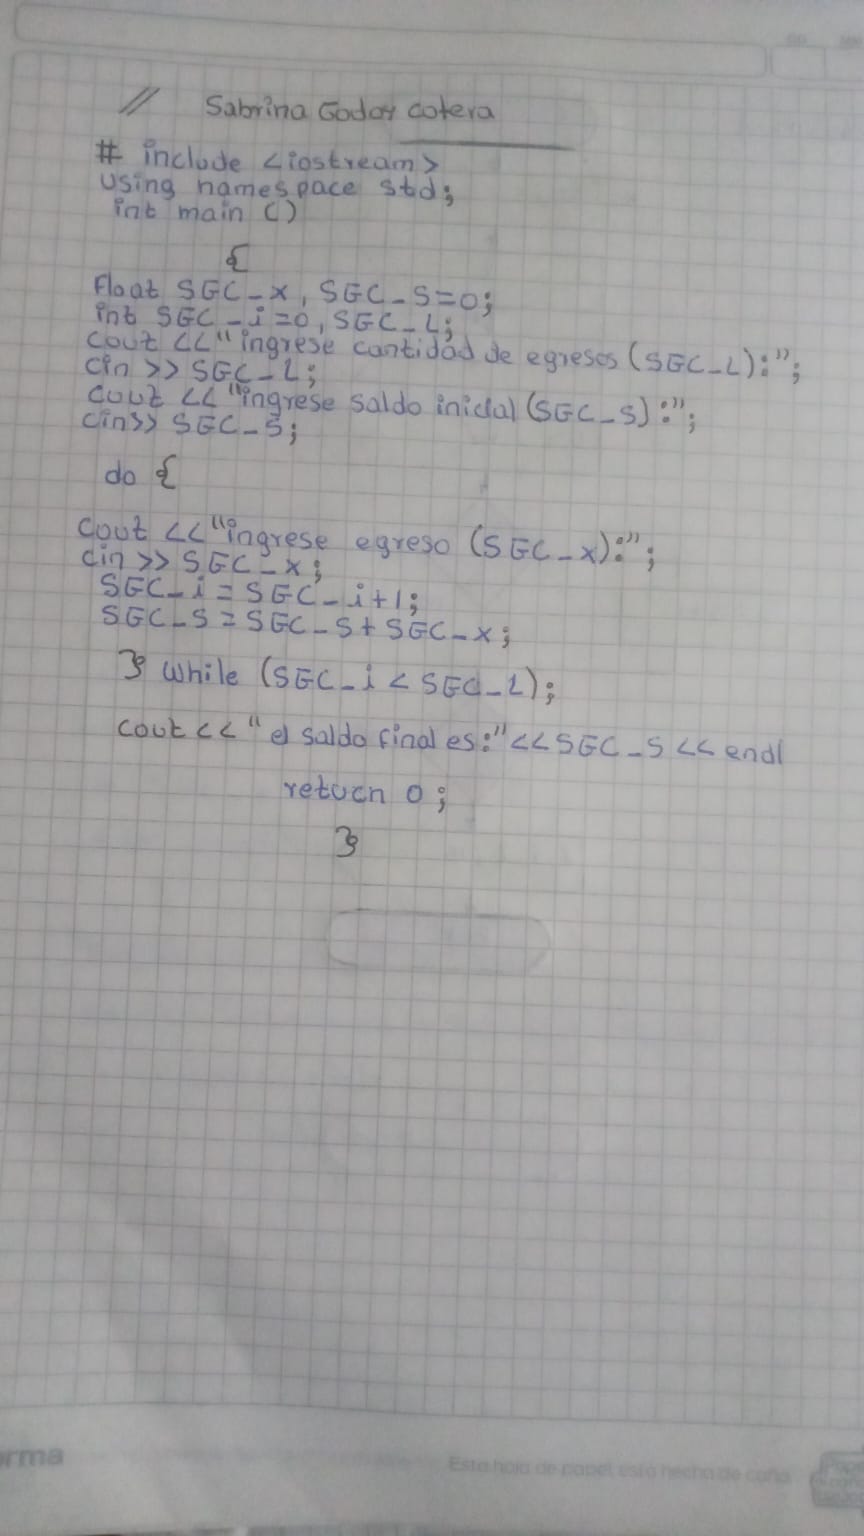 // Sabrina Godoy cotera
# include <iostream>
using namespace std;
int main ()
{
Float SGC_x, SGC_S=0;
int SGC_i=0, SGC_L;
cout <<"ingrese cantidad de egresos (SGC_L):";
cin >> SGC_L;
cout <<"ingrese saldo inicial (SGC_S):";
cin>> SGC_S;
do {
cout <<"ingrese egreso (SGC_x):";
cin >> SGC_x;
SGC_i = SGC_i+1;
SGC_S = SGC_S + SGC_x;
} while (SGC_i < SGC_L);
cout <<"el saldo final es:"<<SGC_S << endl
return 0;
}
orma
Esta hoja de papel esta hecha de caña